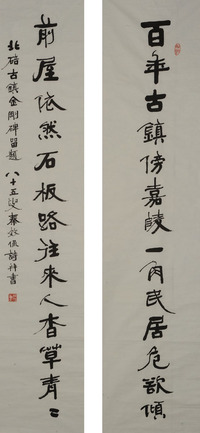 百年古鎮傍嘉陵一角民居危欲傾
前屋依然石板路往來人杳草青〻
北碚古鎮金剛碑留題 八十五 秦效侃詩并書